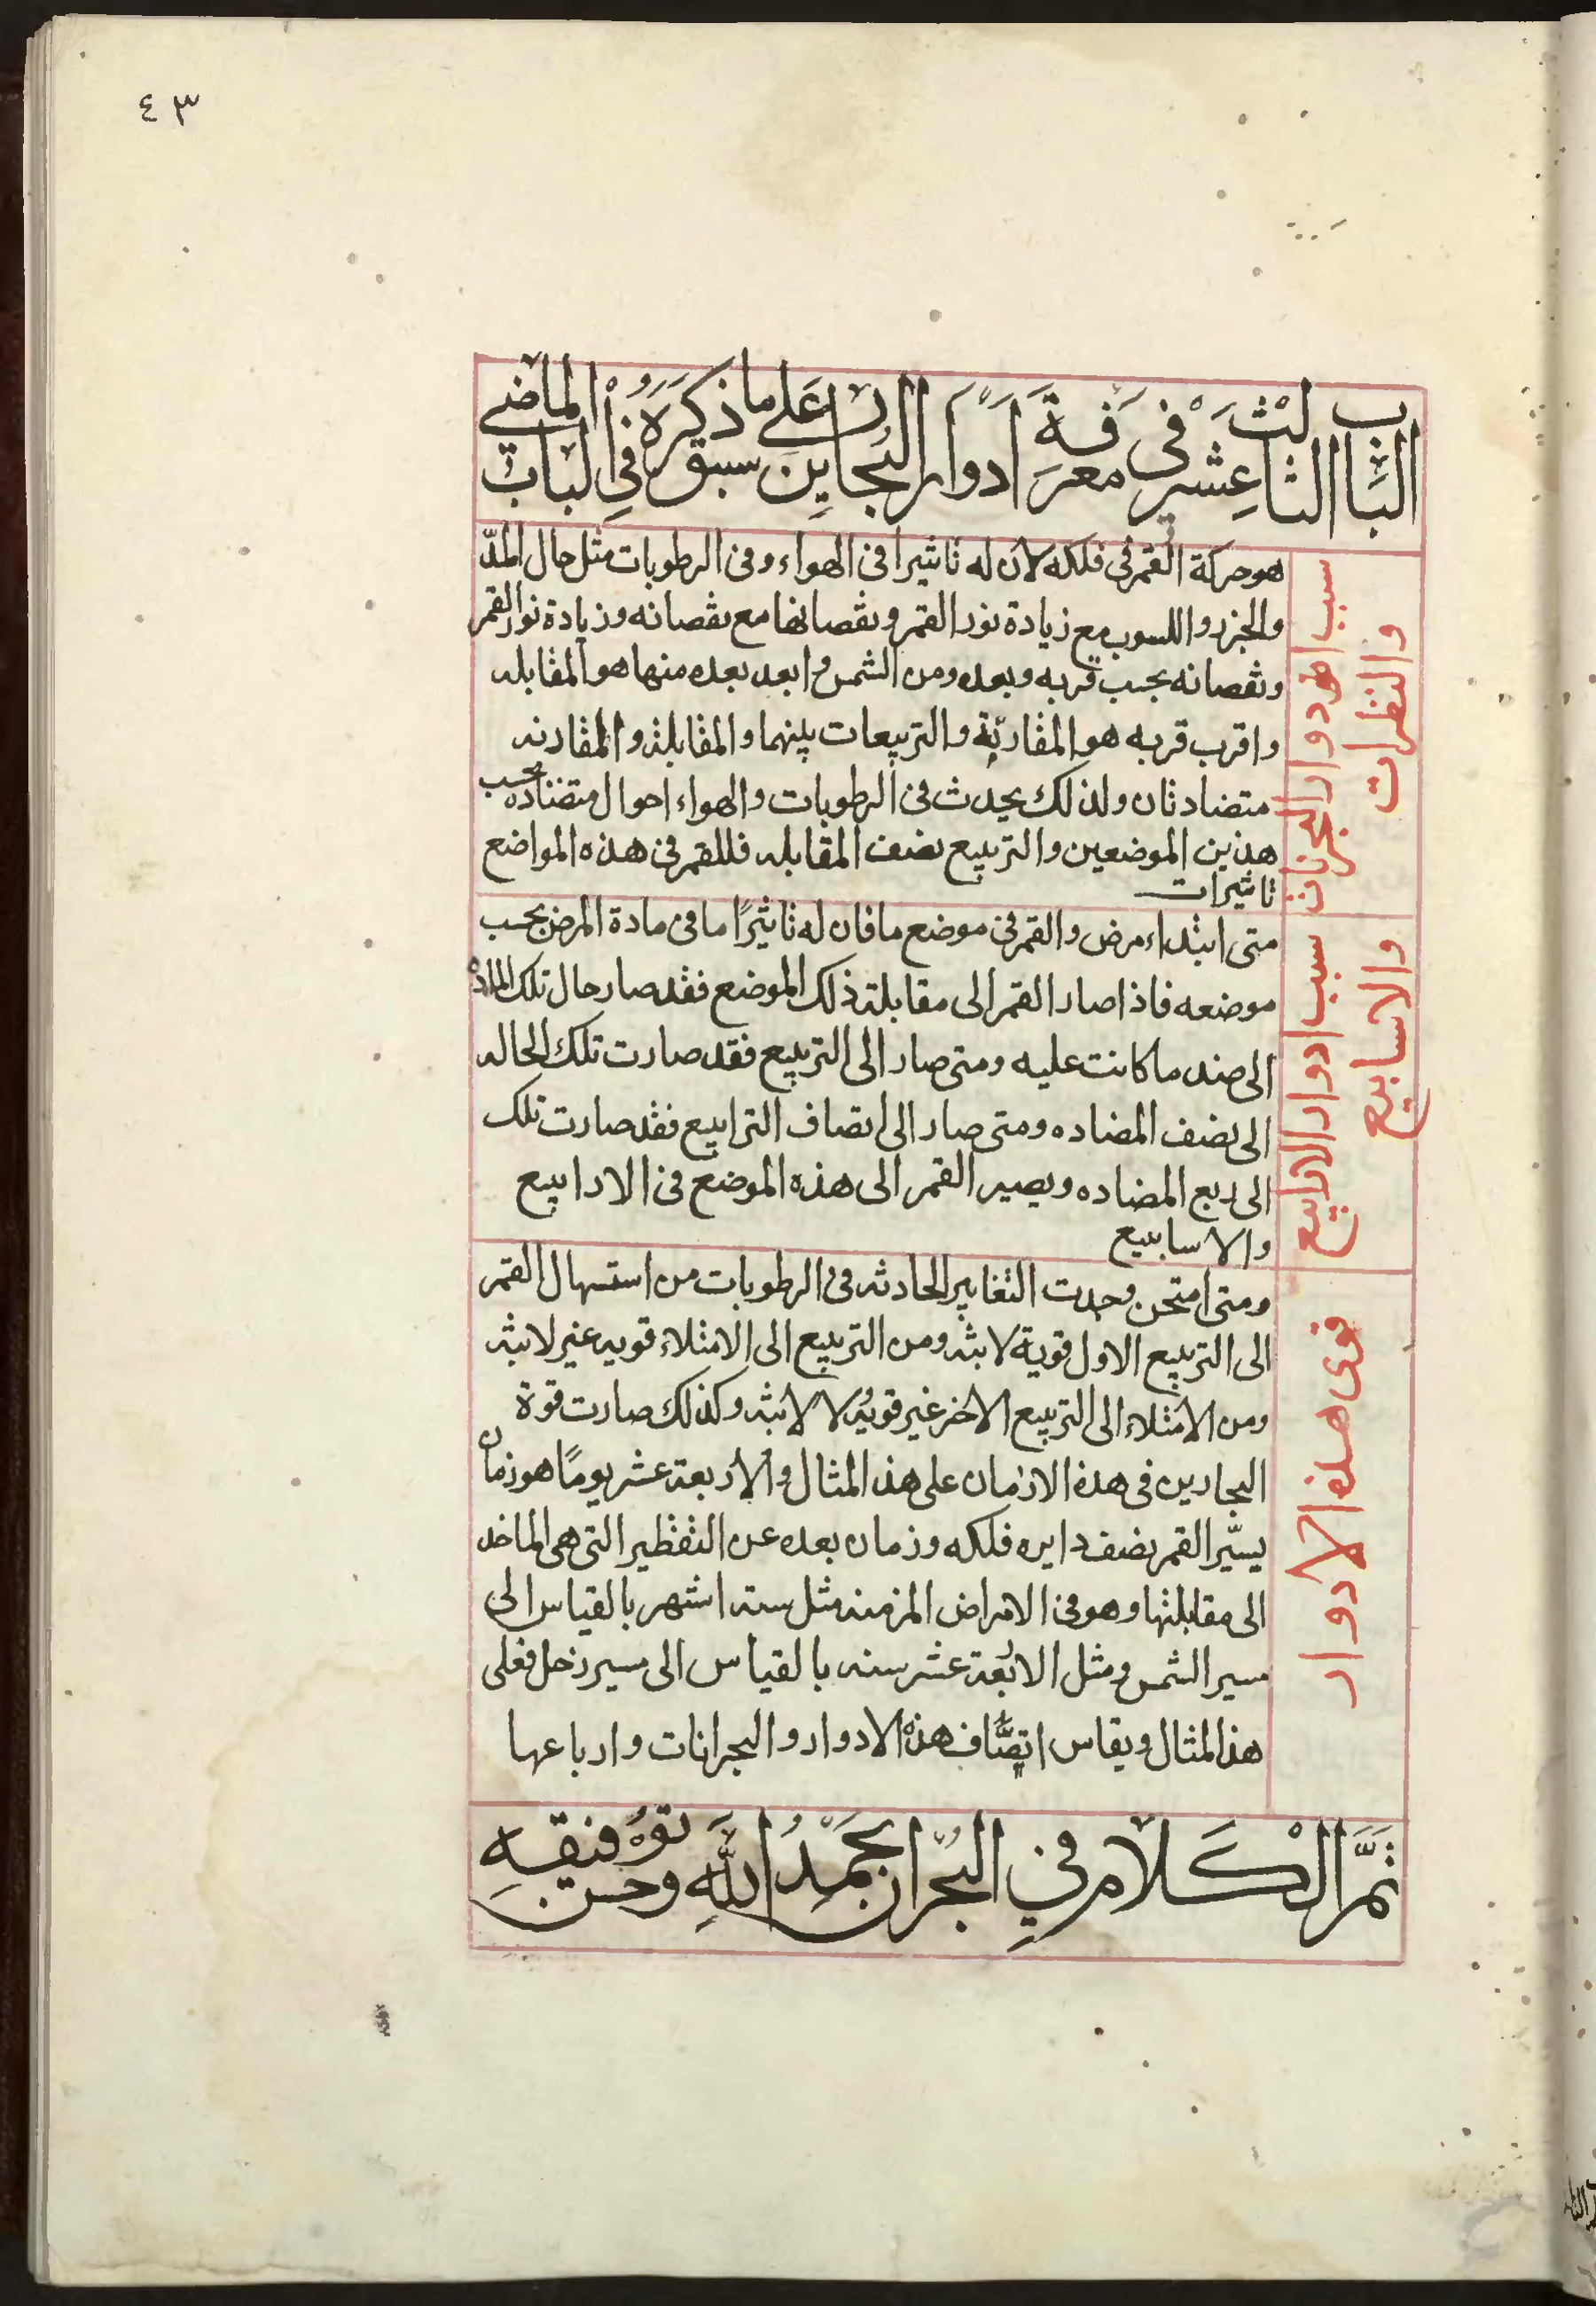 ٤٣
الباب الثالث عشر في معرفة ادوار البحارين على ما سبق ذكره في الباب الماضي
سبب ادوار البحرانات
والنظرات
هو حركة القمر في فلكه لان له تاثيرا في الهواء وفي الرطوبات مثل حال المدّ
والجزر و مع زيادة نور القمر ونقصانها مع نقصانه وزيادة نور القمر
ونقصانه بحسب قربه وبعده ومن الشمس وابعد بعده منها هو المقابله
واقرب قربه هو المقارنة والتربيعات بينهما والمقابلة والمقارنه
متضادتان ولذلك يحدث في الرطوبات والهواء احوال متضاده بحسب
هذين الموضعين والتربيع نصف المقابله فللقمر في هذه المواضع
تاثيرات
سبب ادوار الارابيع
والاسابيع
متى ابتداء مرض والقمر في موضع ما فان له تاثيرًا ما في مادة المرض بحسب
موضعه فاذا صار القمر الى مقابلة ذلك الموضع فقد صار حال تلك المادة
الى ضد ما كانت عليه ومتى صار الى التربيع فقد صارت تلك الحاله
الى نصف المضاده ومتى صار الى انصاف الترابيع فقد صارت تلك
الى ربع المضاده ويصير القمر الى هذه الموضع في الارابيع
والاسابيع
قوى هذه الادوار
ومتى امتحن وجدت التغايير الحادثه في الرطوبات من استهلال القمر
الى التربيع الاول قوية لابثه ومن التربيع الى الامتلاء قويه غير لابثه
ومن الامتلاء الى التربيع الاخر غير قويه لا لابثه وكذلك صارت قوة
البحارين في هذه الازمان على هذا المثال والاربعة عشر يومًا هو زمان
يسيّر القمر نصف دايره فلكه وزمان بعده عن النقطير التي هي الماخذ
الى مقابلتها وهو في الامراض المزمنه مثل ستة اشهر بالقياس الى
مسير الشمس ومثل الاربعة عشر سنه بالقياس الى مسير زحل فعلى
هذا المثال ويقاس انصاف هذه الادوار والبحرانات وارباعها
تمَّ الكلام في البُحران بحمد الله وحسن توفيقه